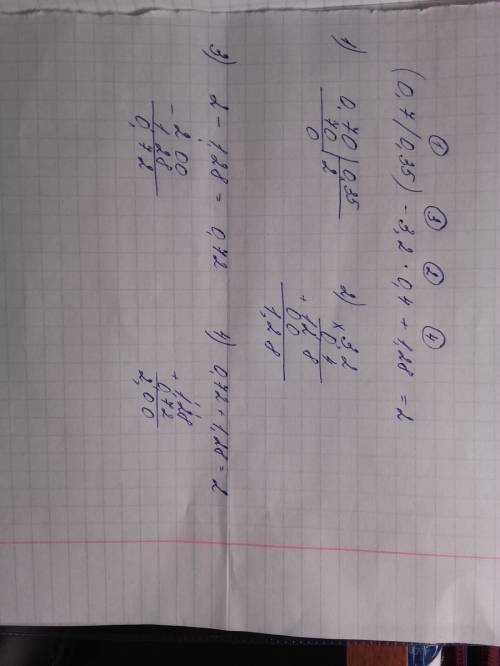 ① ③ ② ④
(0,7/0,35) - 3,2 · 0,4 + 1,28 = 2
1) 0,70 | 0,35
70 | 2
0
2) × 3,2
0,4
+ 12 8
00
1,28
3) 2 - 1,28 = 0,72
- 2,00
1,28
0,72
4) 0,72 + 1,28 = 2
+ 1,28
0,72
2,00